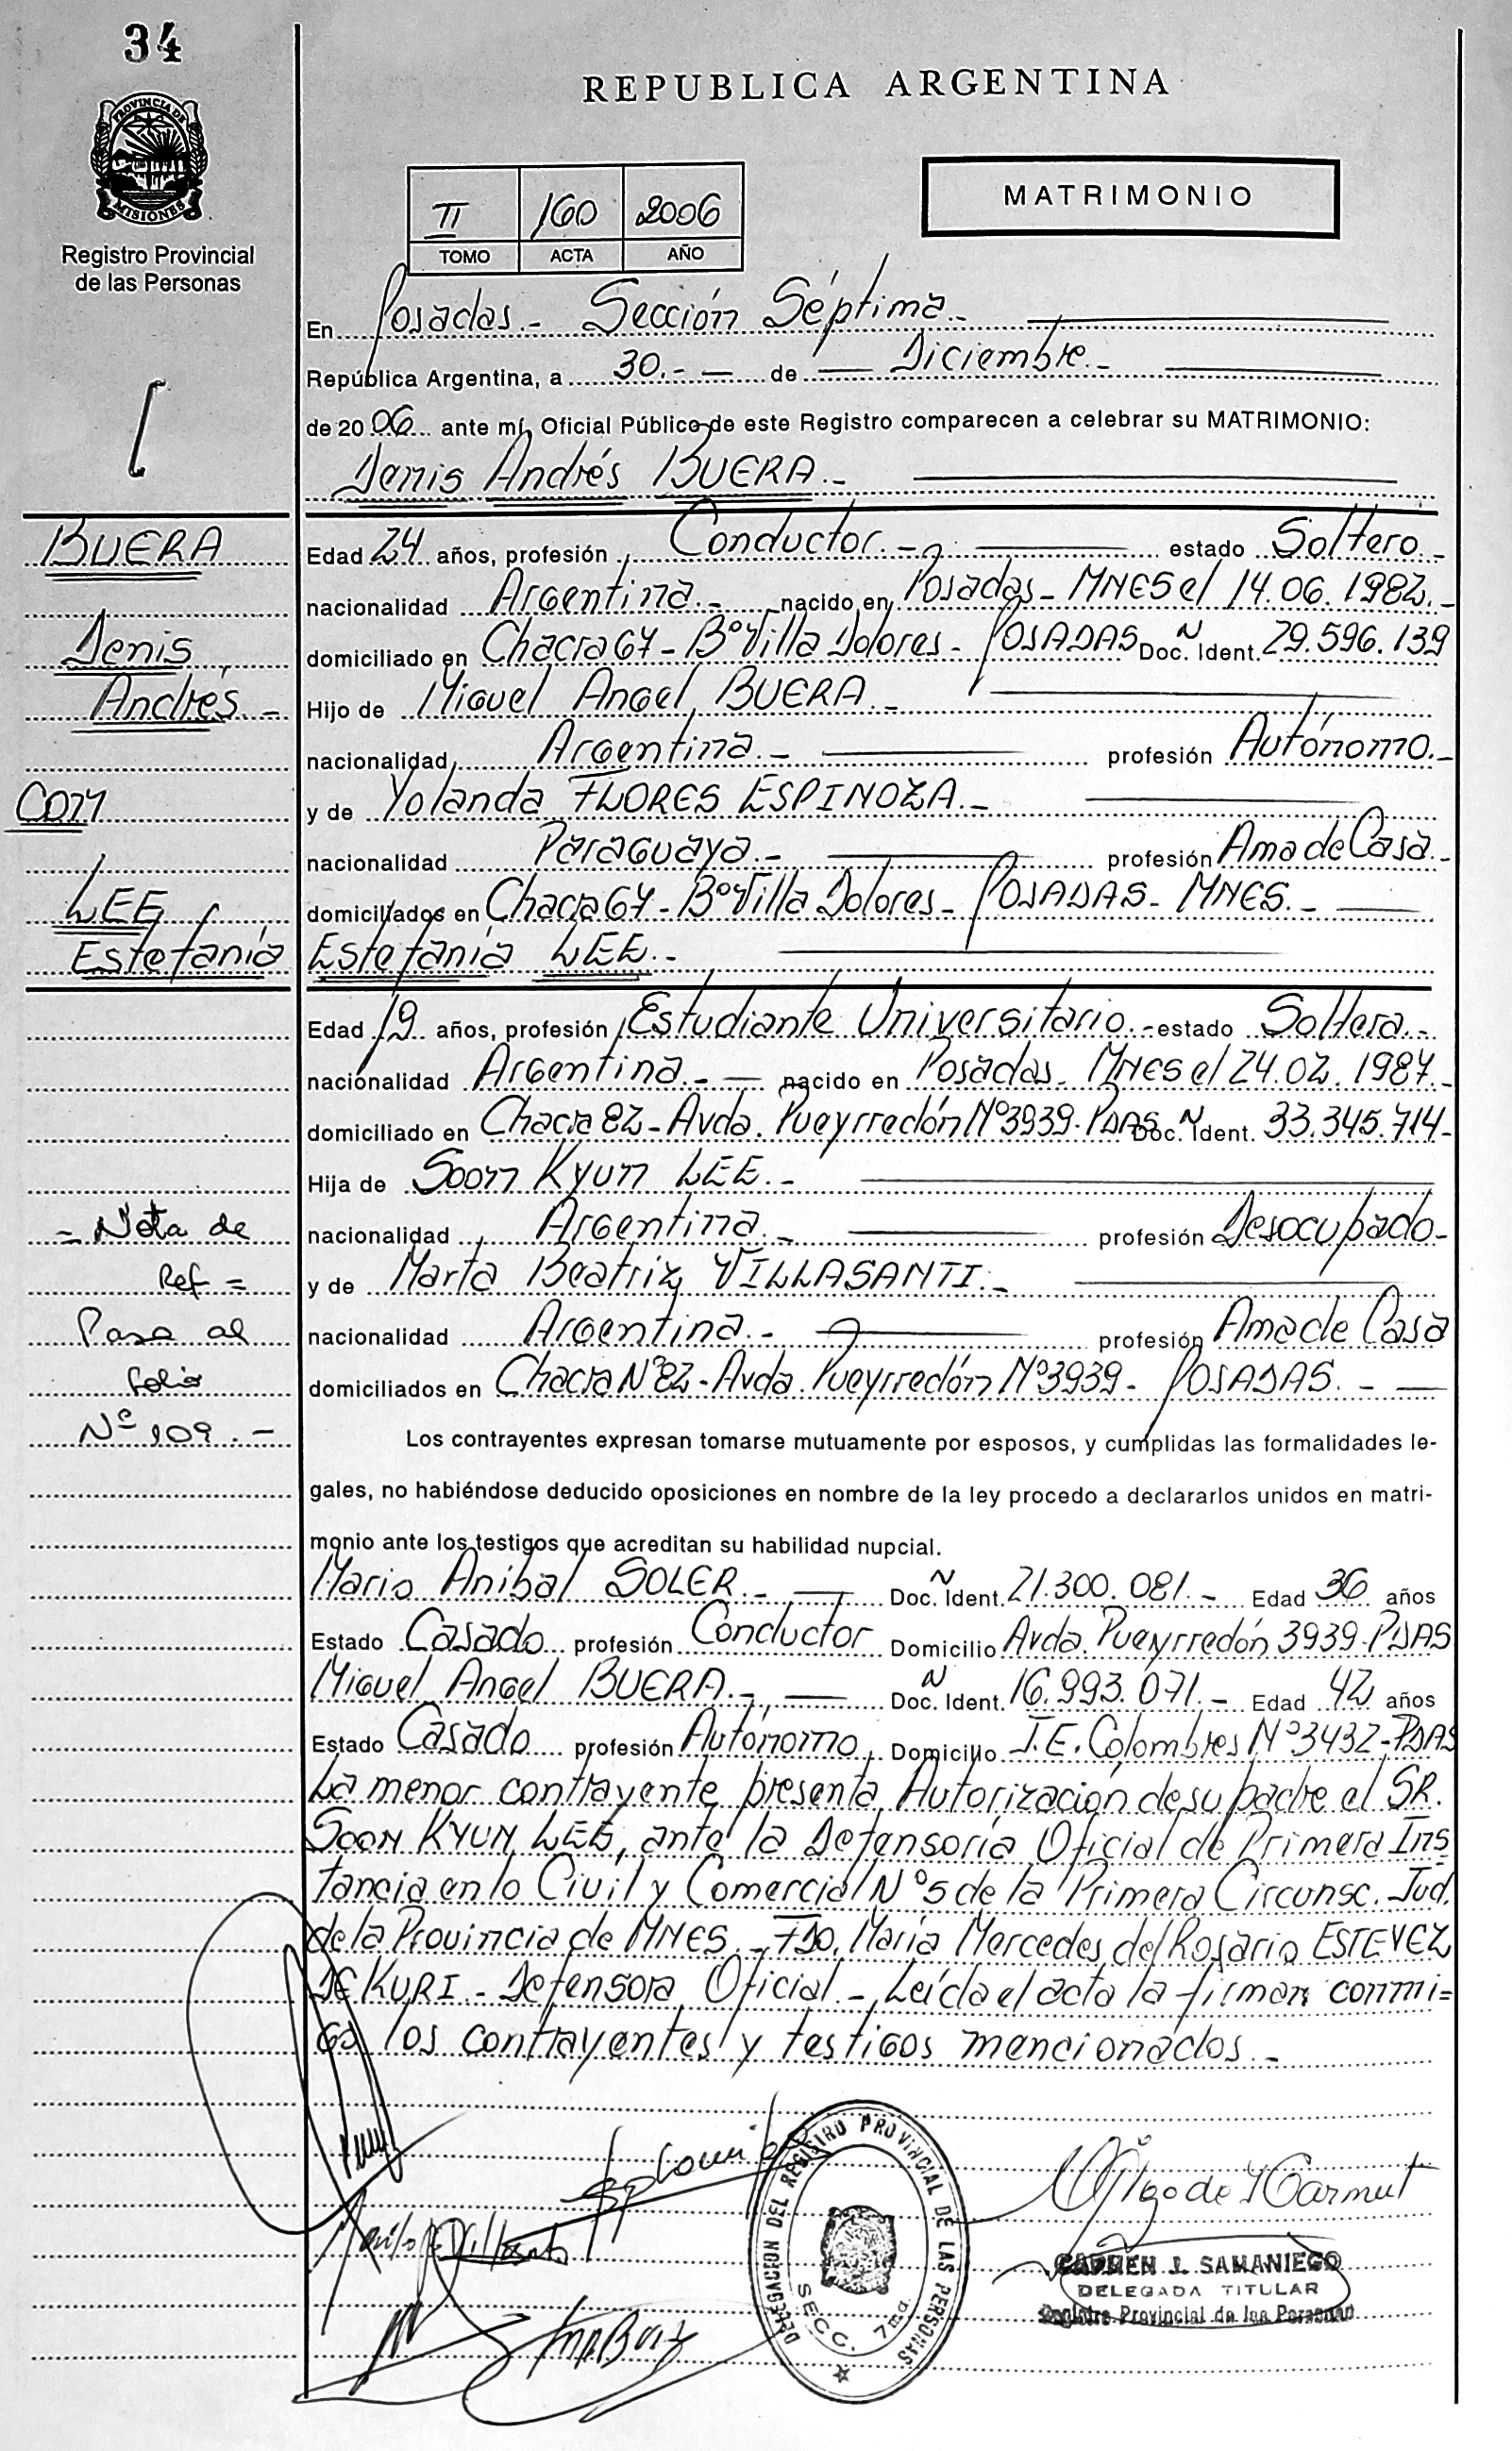 34
REPUBLICA ARGENTINA
PROVINCIA DE
MISIONES
Registro Provincial
de las Personas
MATRIMONIO
II 160 2006
TOMO ACTA AÑO
En Posadas.- Sección Séptima.-
República Argentina, a 30.- de Diciembre.-
de 2006 ante mí, Oficial Público de este Registro comparecen a celebrar su MATRIMONIO:
Denis Andrés BUERA.-
BUERA
Denis
Andrés.-
con
LEE
Estefanía
Edad 24 años, profesión Conductor.- estado Soltero.-
nacionalidad Argentina.- nacido en Posadas- MNES el 14.06.1982.-
domiciliado en Chacra 67- Bº Villa Dolores- POSADAS Doc. N Ident. 29.596.139
Hijo de Miguel Angel BUERA.-
nacionalidad Argentina.- profesión Autónomo.-
y de Yolanda FLORES ESPINOZA.-
nacionalidad Paraguaya.- profesión Ama de Casa.-
domiciliados en Chacra 67- Bº Villa Dolores- POSADAS- MNES.-
Estefanía LEE.-
Edad 19 años, profesión Estudiante Universitario.- estado Soltera.-
nacionalidad Argentina.- nacido en Posadas- MNES el 24.02.1987.-
domiciliado en Chacra 82- Avda. Pueyrredón Nº 3939- PDAS Doc. N Ident. 33.345.714-
Hija de Soon Kyun LEE.-
nacionalidad Argentina.- profesión Desocupado-
y de Marta Beatriz VILLASANTI.-
nacionalidad Argentina.- profesión Ama de Casa
domiciliados en Chacra Nº 82- Avda. Pueyrredón Nº 3939- POSADAS.-
= Nota de
Ref =
Pasa al
folio
Nº 109.-
Los contrayentes expresan tomarse mutuamente por esposos, y cumplidas las formalidades le-
gales, no habiéndose deducido oposiciones en nombre de la ley procedo a declararlos unidos en matri-
monio ante los testigos que acreditan su habilidad nupcial.
Mario Anibal SOLER.- Doc. N Ident. 21.300.081.- Edad 36 años
Estado Casado profesión Conductor Domicilio Avda. Pueyrredón 3939-PDAS
Miguel Angel BUERA.- Doc. N Ident. 16.993.071.- Edad 42 años
Estado Casado profesión Autónomo Domicilio J.E. Colombres Nº 3432-PDAS
La menor contrayente presenta Autorización de su padre el SR.
SOON KYUN LEE, ante la Defensoría Oficial de Primera Ins
tancia en lo Civil y Comercial Nº 5 de la Primera Circunsc. Jud.
de la Provincia de MNES.- FDO. María Mercedes del Rosario ESTEVEZ
DE KURI- Defensora Oficial.- Leída el acta la firman conmi=
go los contrayentes y testigos mencionados.-
DELEGACION DEL REGISTRO PROVINCIAL DE LAS PERSONAS
SECC. 7ma.
CARMEN J. SAMANIEGO
DELEGADA TITULAR
Registro Provincial de las Personas